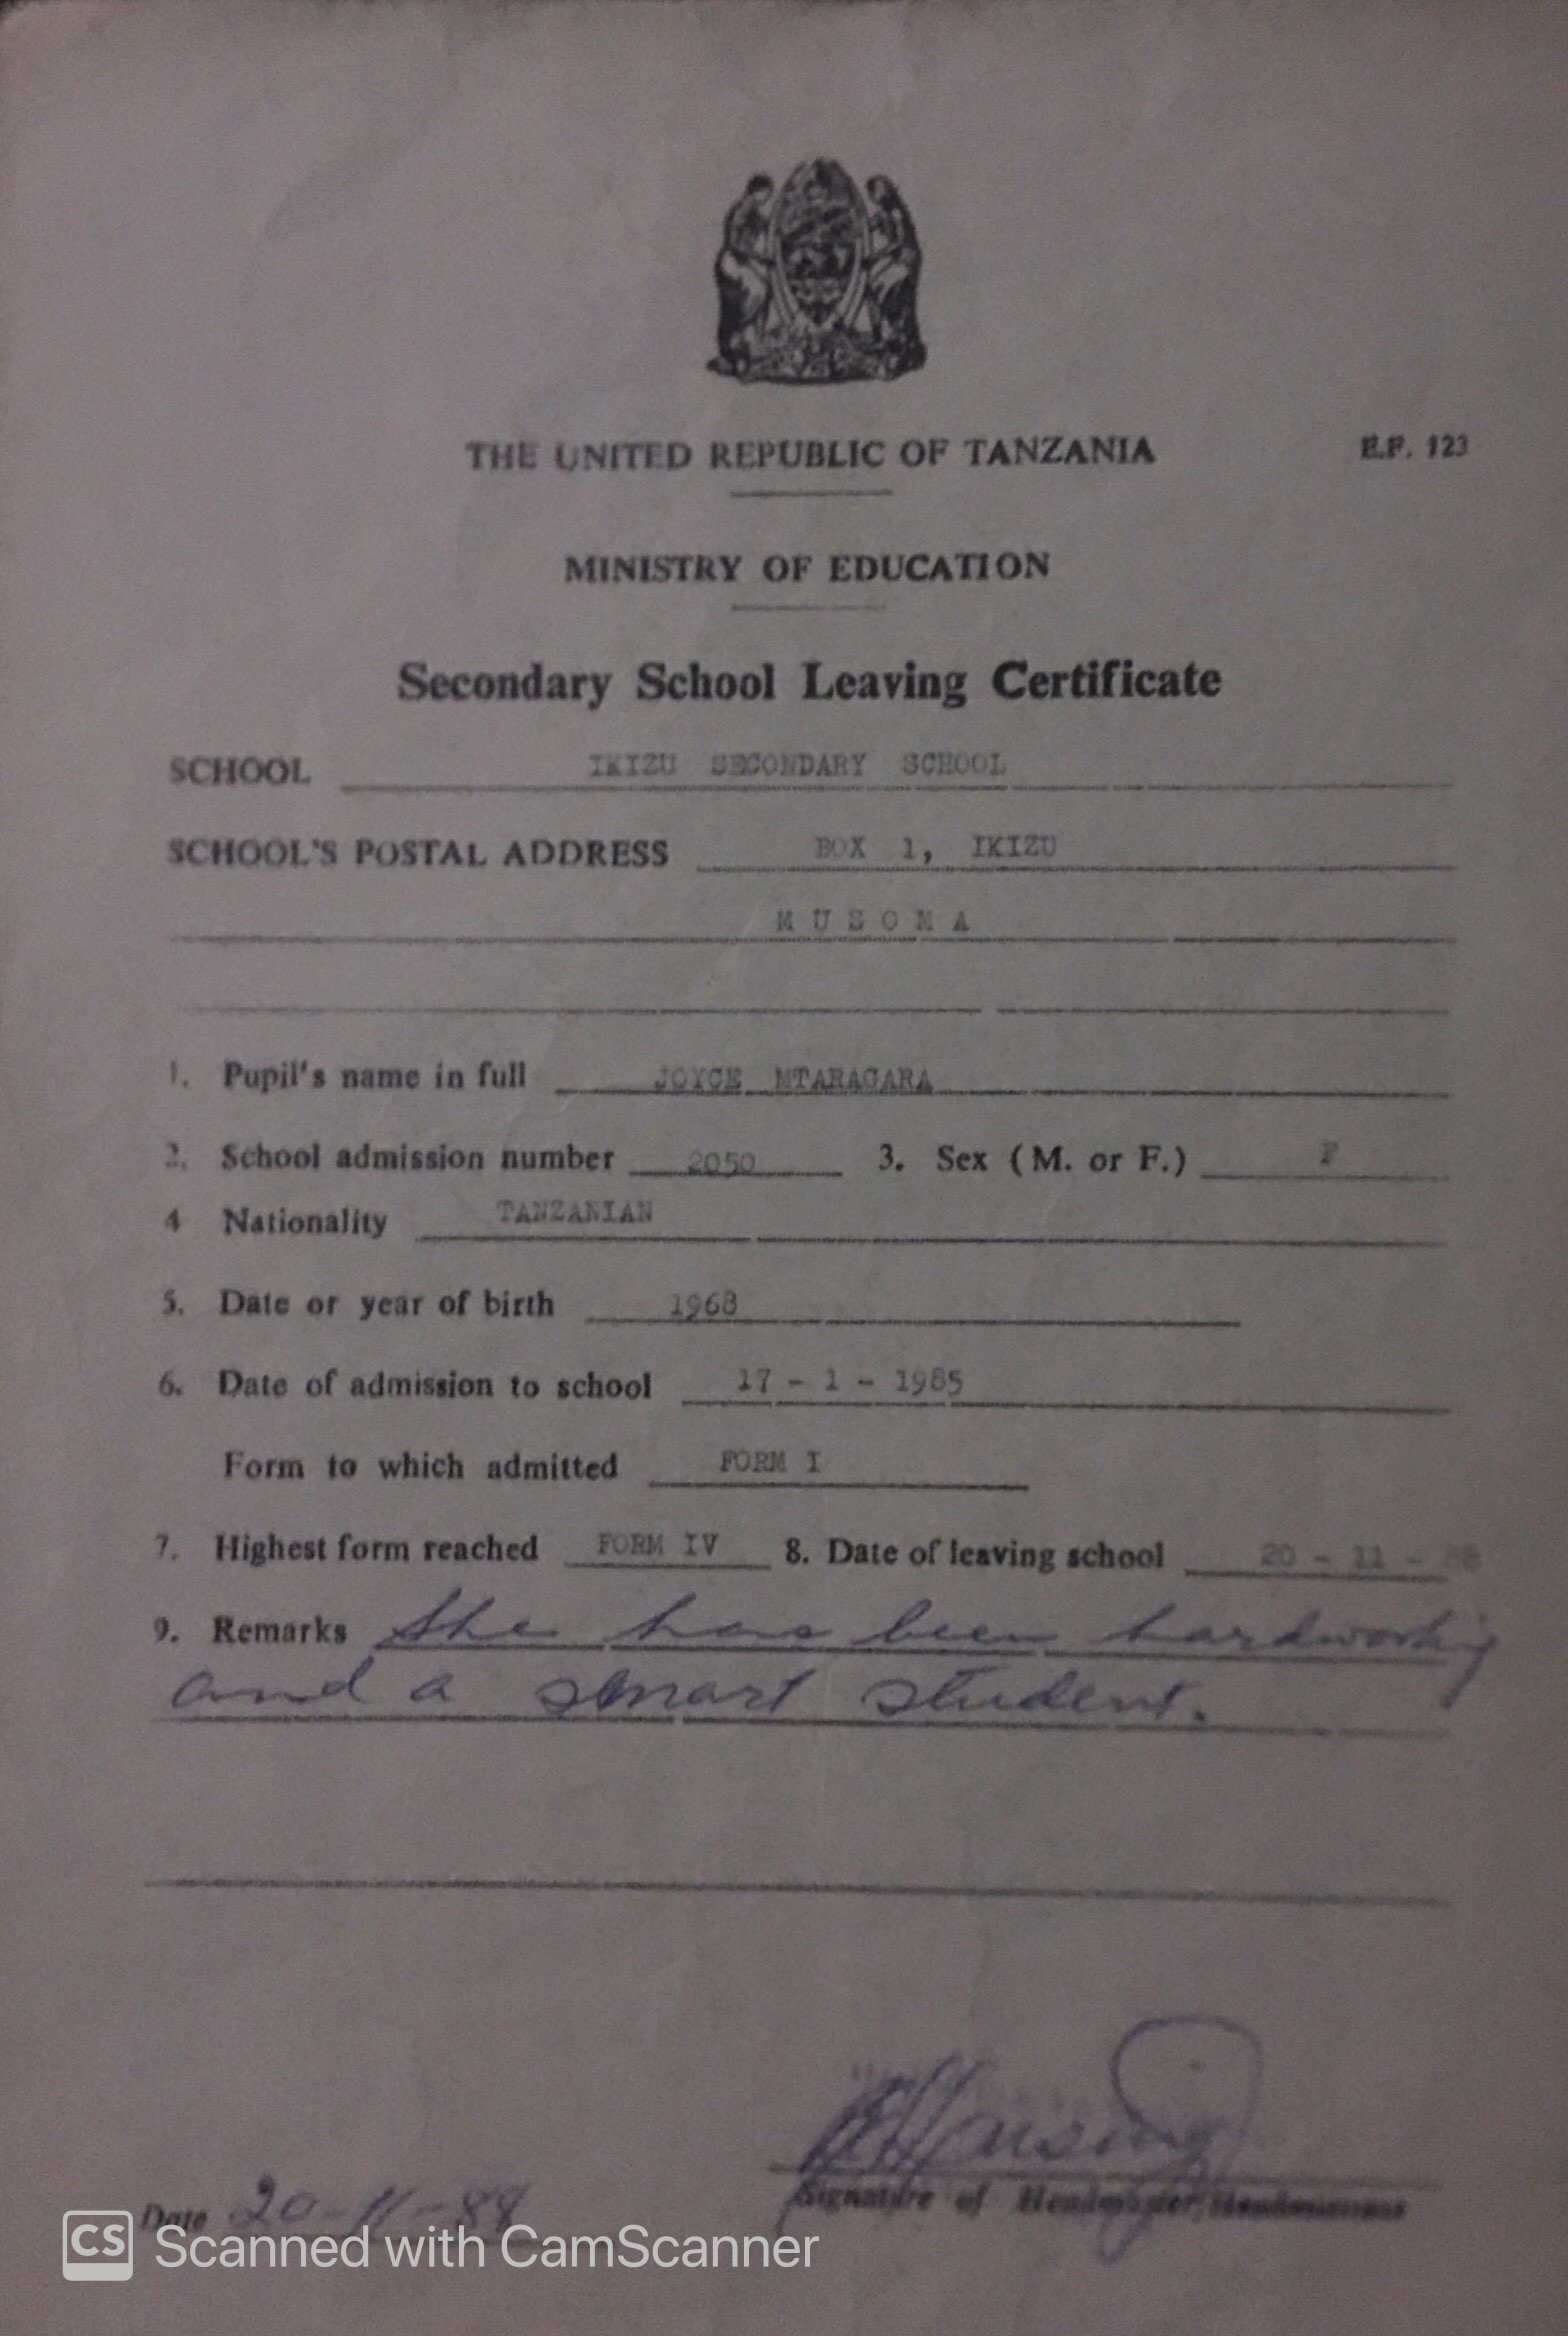 THE UNITED REPUBLIC OF TANZANIA E.F. 123
MINISTRY OF EDUCATION
Secondary School Leaving Certificate
SCHOOL IKIZU SECONDARY SCHOOL
SCHOOL'S POSTAL ADDRESS BOX 1, IKIZU
MUSOMA
1. Pupil's name in full JOYCE MTARAGARA
2. School admission number 2050 3. Sex (M. or F.) F
4 Nationality TANZANIAN
5. Date or year of birth 1968
6. Date of admission to school 17 - 1 - 1985
Form to which admitted FORM I
7. Highest form reached FORM IV 8. Date of leaving school 20 - 11 - 88
9. Remarks She has been hardworking
and a smart student.
Signature of Headmaster/Headmistress
Date 20-11-88
CS Scanned with CamScanner